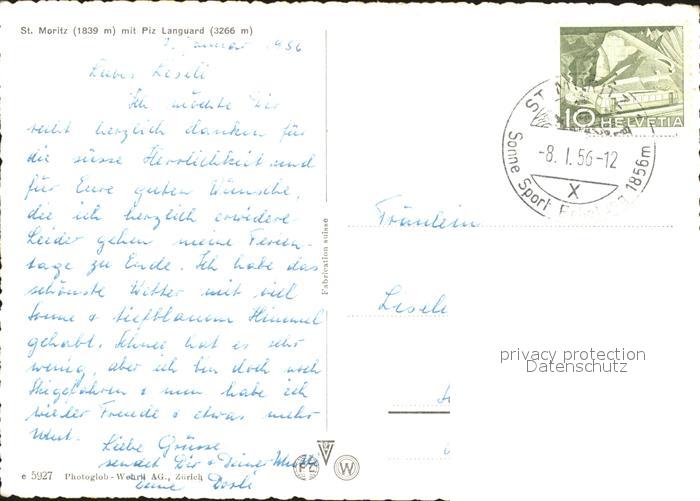 St. Moritz (1839 m) mit Piz Languard (3266 m)
Januar 1956
Liebes Liseli
Ich möchte Dir
recht herzlich danken für
die süsse Herrlichkeit und
für Eure guten Wünsche,
die ich herzlich erwidere
Leider gehen meine Ferien-
tage zu Ende. Ich habe das
schönste Wetter mit viel
Sonne & tiefblauem Himmel
gehabt. Schnee hat es sehr
wenig, aber ich bin doch noch
Skigefahren & nun habe ich
wieder Freude & etwas mehr
Mut.
Liebe Grüsse
sendet Dir & Deine
Deine Dorli
e 5927 Photoglob-Wehrli AG., Zürich
Fabrication suisse
PZ W
10 HELVETIA
ST. MORITZ
-8. I. 56-12
X
Sonne Sport 1856m
Fräulein
privacy protection
Datenschutz